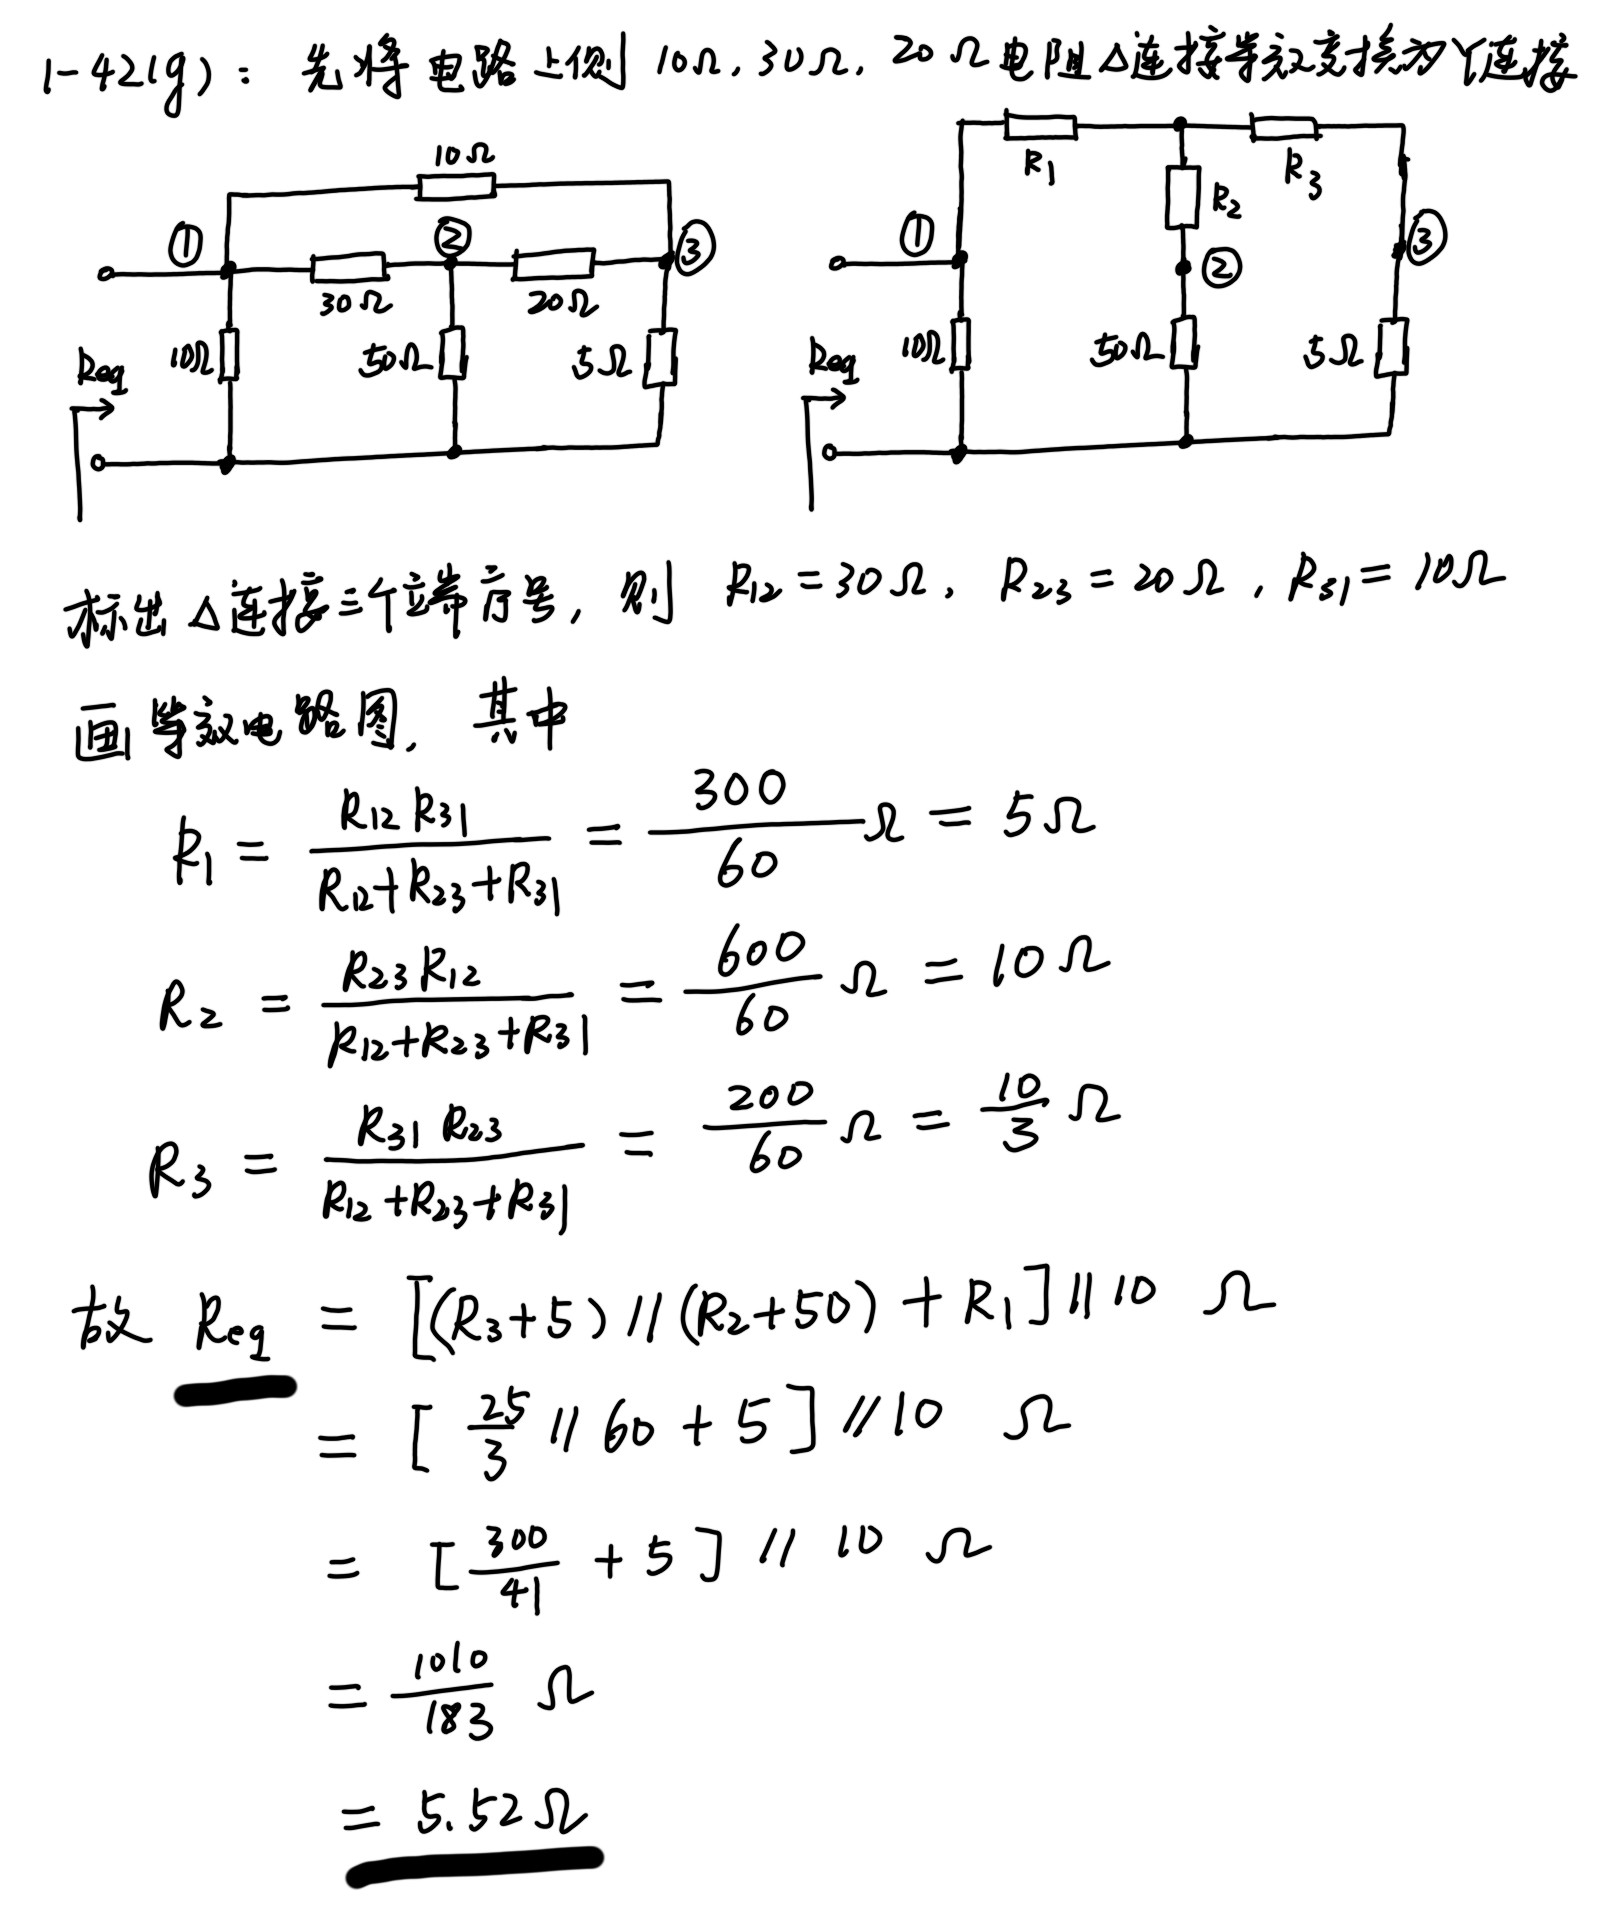 1-42(g): 先将电路上侧 10Ω, 30Ω, 20Ω电阻△连接等效变换为Y连接
10Ω
① ② ③
30Ω 20Ω
10Ω 50Ω 5Ω
Req
R1 R3
R2
① ② ③
10Ω 50Ω 5Ω
Req
标出△连接三个端序号, 则 R12=30Ω, R23=20Ω, R31=10Ω
画等效电路图. 其中
R1 = R12 R31 / (R12+R23+R31) = 300/60 Ω = 5Ω
R2 = R23 R12 / (R12+R23+R31) = 600/60 Ω = 10Ω
R3 = R31 R23 / (R12+R23+R31) = 200/60 Ω = 10/3 Ω
故 Req = [(R3+5)//(R2+50)+R1]//10 Ω
= [25/3 // 60 + 5]//10 Ω
= [300/41 + 5]//10 Ω
= 1010/183 Ω
= 5.52Ω